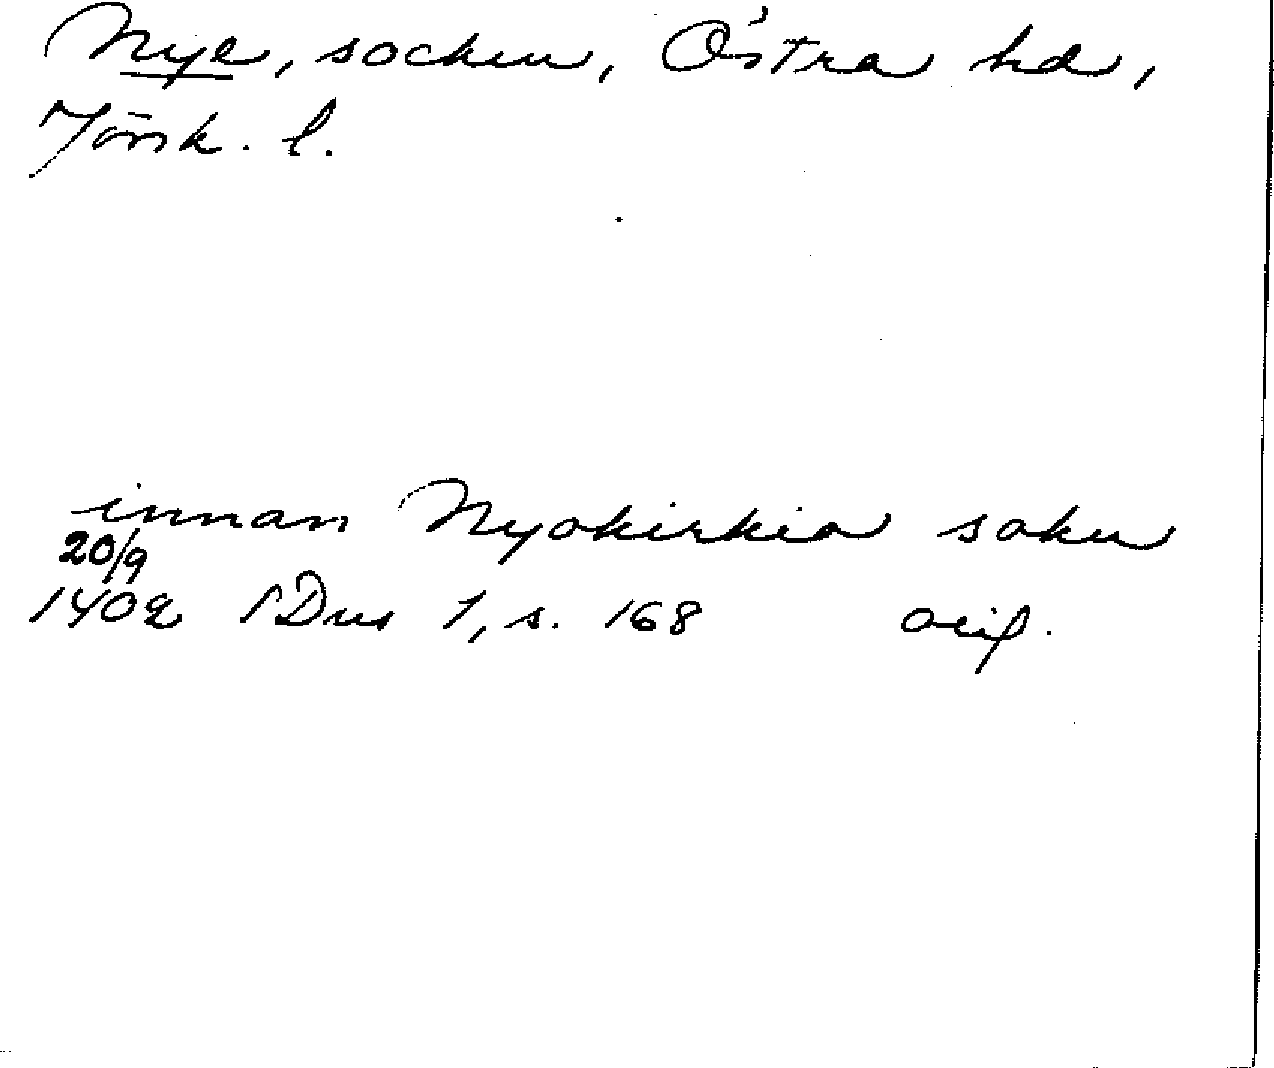 Nye, socken, Östra hd,
Jönk. l.
innan Nyokirkio sokn
20/9
1402 SDns 1, s. 168 orig.